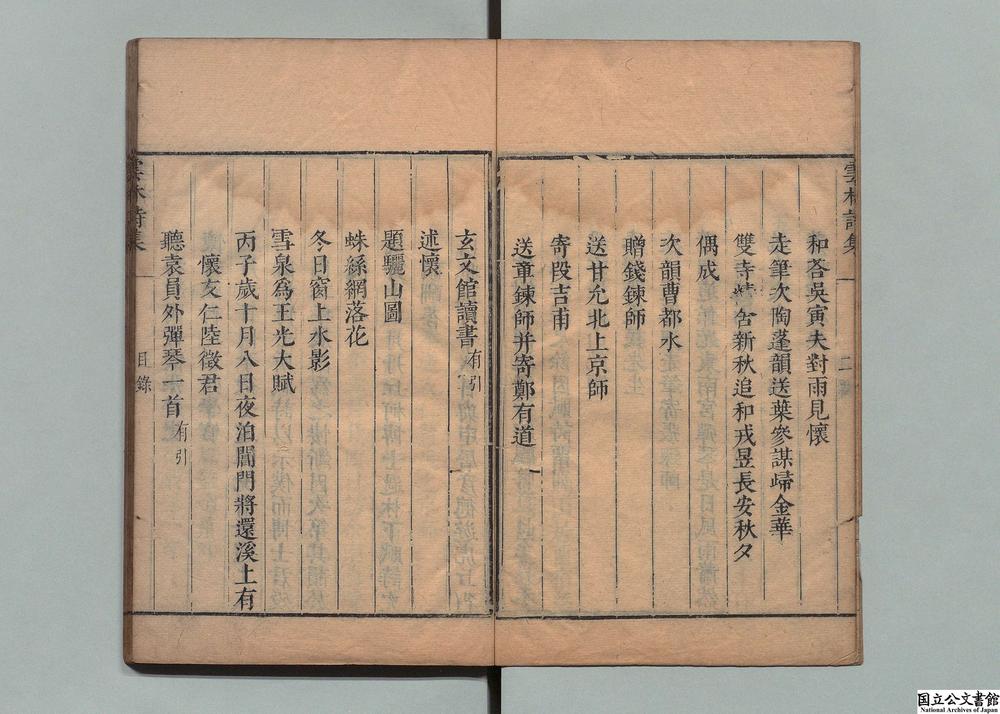 雲林詩集 一 二
和荅吳寅夫對雨見懷
走筆次陶蓬韻送葉參謀歸金華
雙寺精舍新秋追和戎昱長安秋夕
偶成
次韻曹都水
贈錢鍊師
送甘允北上京師
寄段吉甫
送章鍊師并寄鄭有道
玄文館讀書有引
述懷
題驪山圖
蛛絲網落花
冬日窗上水影
雪泉爲王光大賦
丙子歲十月八日夜泊閶門將還溪上有
懷友仁陸徵君
聽袁員外彈琴一首有引
雲林詩集 一 目錄
国立公文書館
National Archives of Japan